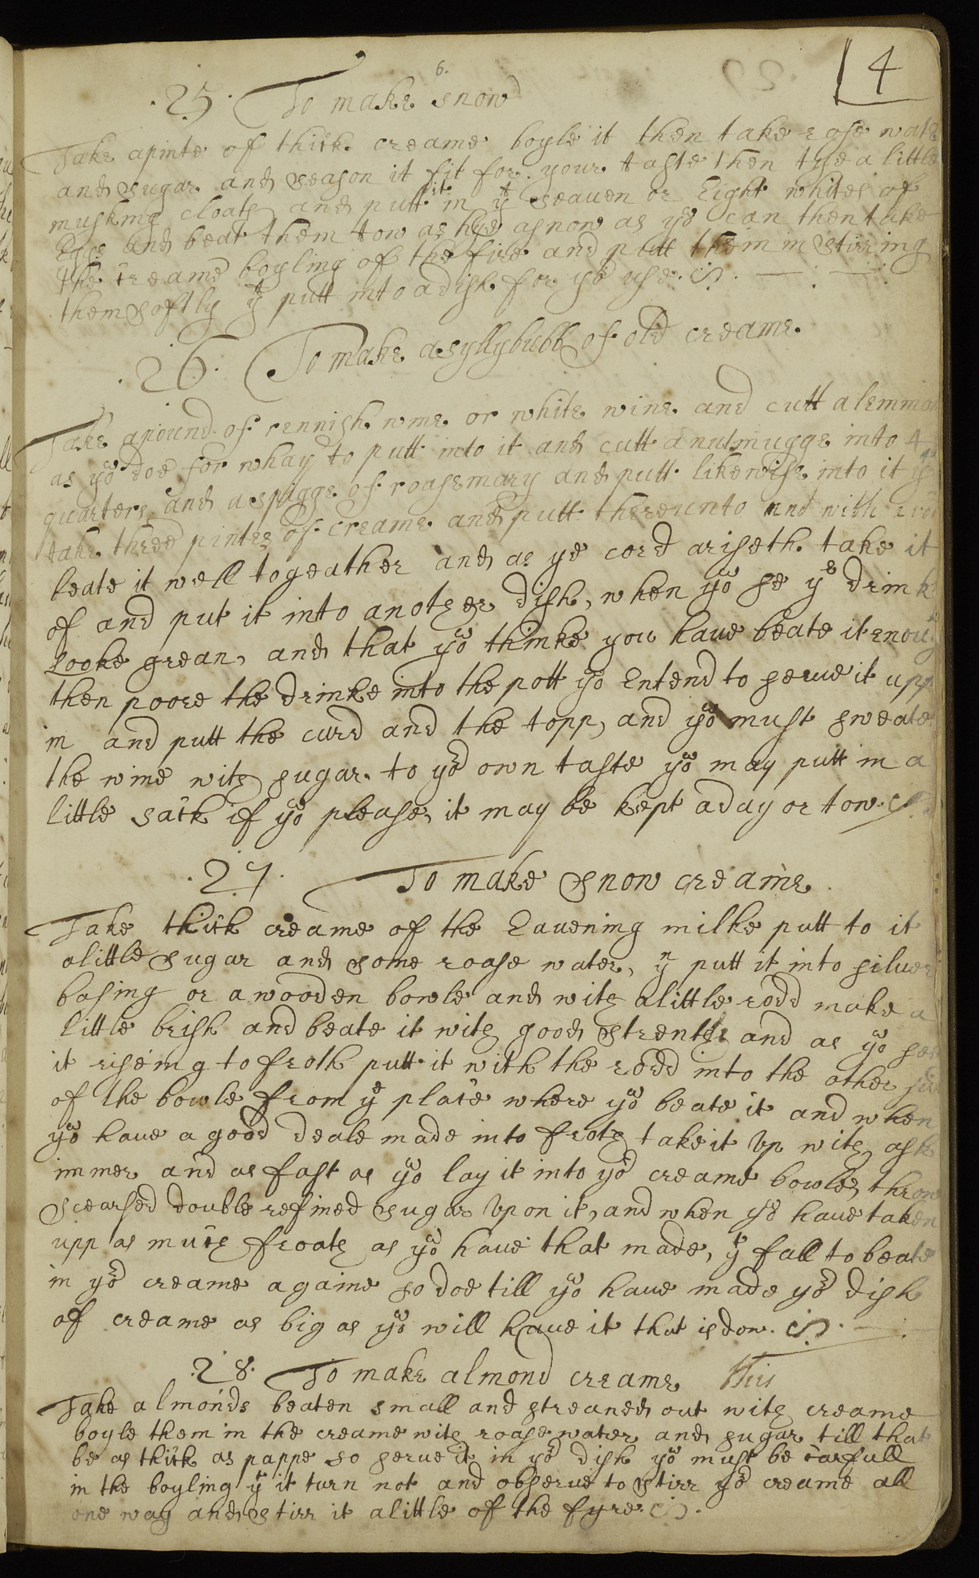 4
6.
.25. To make snow
Take a pinte of thick creame boyle it then take rose water
and sugar and season it fit for your taste then tye a little
musk in a cloath and putt it in yn seaven or Eight whites of
Eggs and beat them tow as like asnow as yo can then take
the creame boyling of the fire and putt them in stiring
them softly yn putt into a dish for yor use.
.26. To make a syllybubb of old creame.
Take a pound of rennish wine or white wine and cutt a lemmon
as yo doe for whay to putt into it and cutt a nutmugge into 4
quarters and a sprigge of roasemary and putt likewise into it yn
take three pintes of creame and putt thereunto and with a rod
beate it well togeather and as ye cord ariseth take it
of and put it into another dish, when yo se ye drink
Looke grean, and that yo thinke you have beate it enough
then poore the drinke into the pott yo Entend to serve it upp
in and putt the curd and the topp, and yo must sweate
the wine with sugar to yor own taste yo may putt in a
little sack if yo please, it may be kept a day or tow.
.27. To make snow creame.
Take thick creame of the Eavening milke putt to it
alittle sugar and some roase water, yn putt it into silver
basing or a wooden bowle and with alittle rodd make a
little brish and beate it with good strenth and as yo see
it riseing to froth putt it with the rodd into the other side
of the bowle from ye place where yo beate it and when
yo have a good deale made into froth take it Vp with a sk
immer and as fast as yo lay it into yor creame bowle, throw
scearsed double refined sugar Vpon it, and when yo have taken
upp as much froath as yo have that made, yn fall to beate
in yor creame againe so doe till yo have made yor dish
of creame as big as yo will have it that is don.
.28. To make almond creame this
Take almonds beaten small and streaned out with creame
boyle them in the creame with roase water and sugar till that
be as thick as pappe so serve it in yor dish yo must be carfull
in the boyling yt it turn not and observe to stirr yor creame all
one way and stirr it alittle of the fyre.